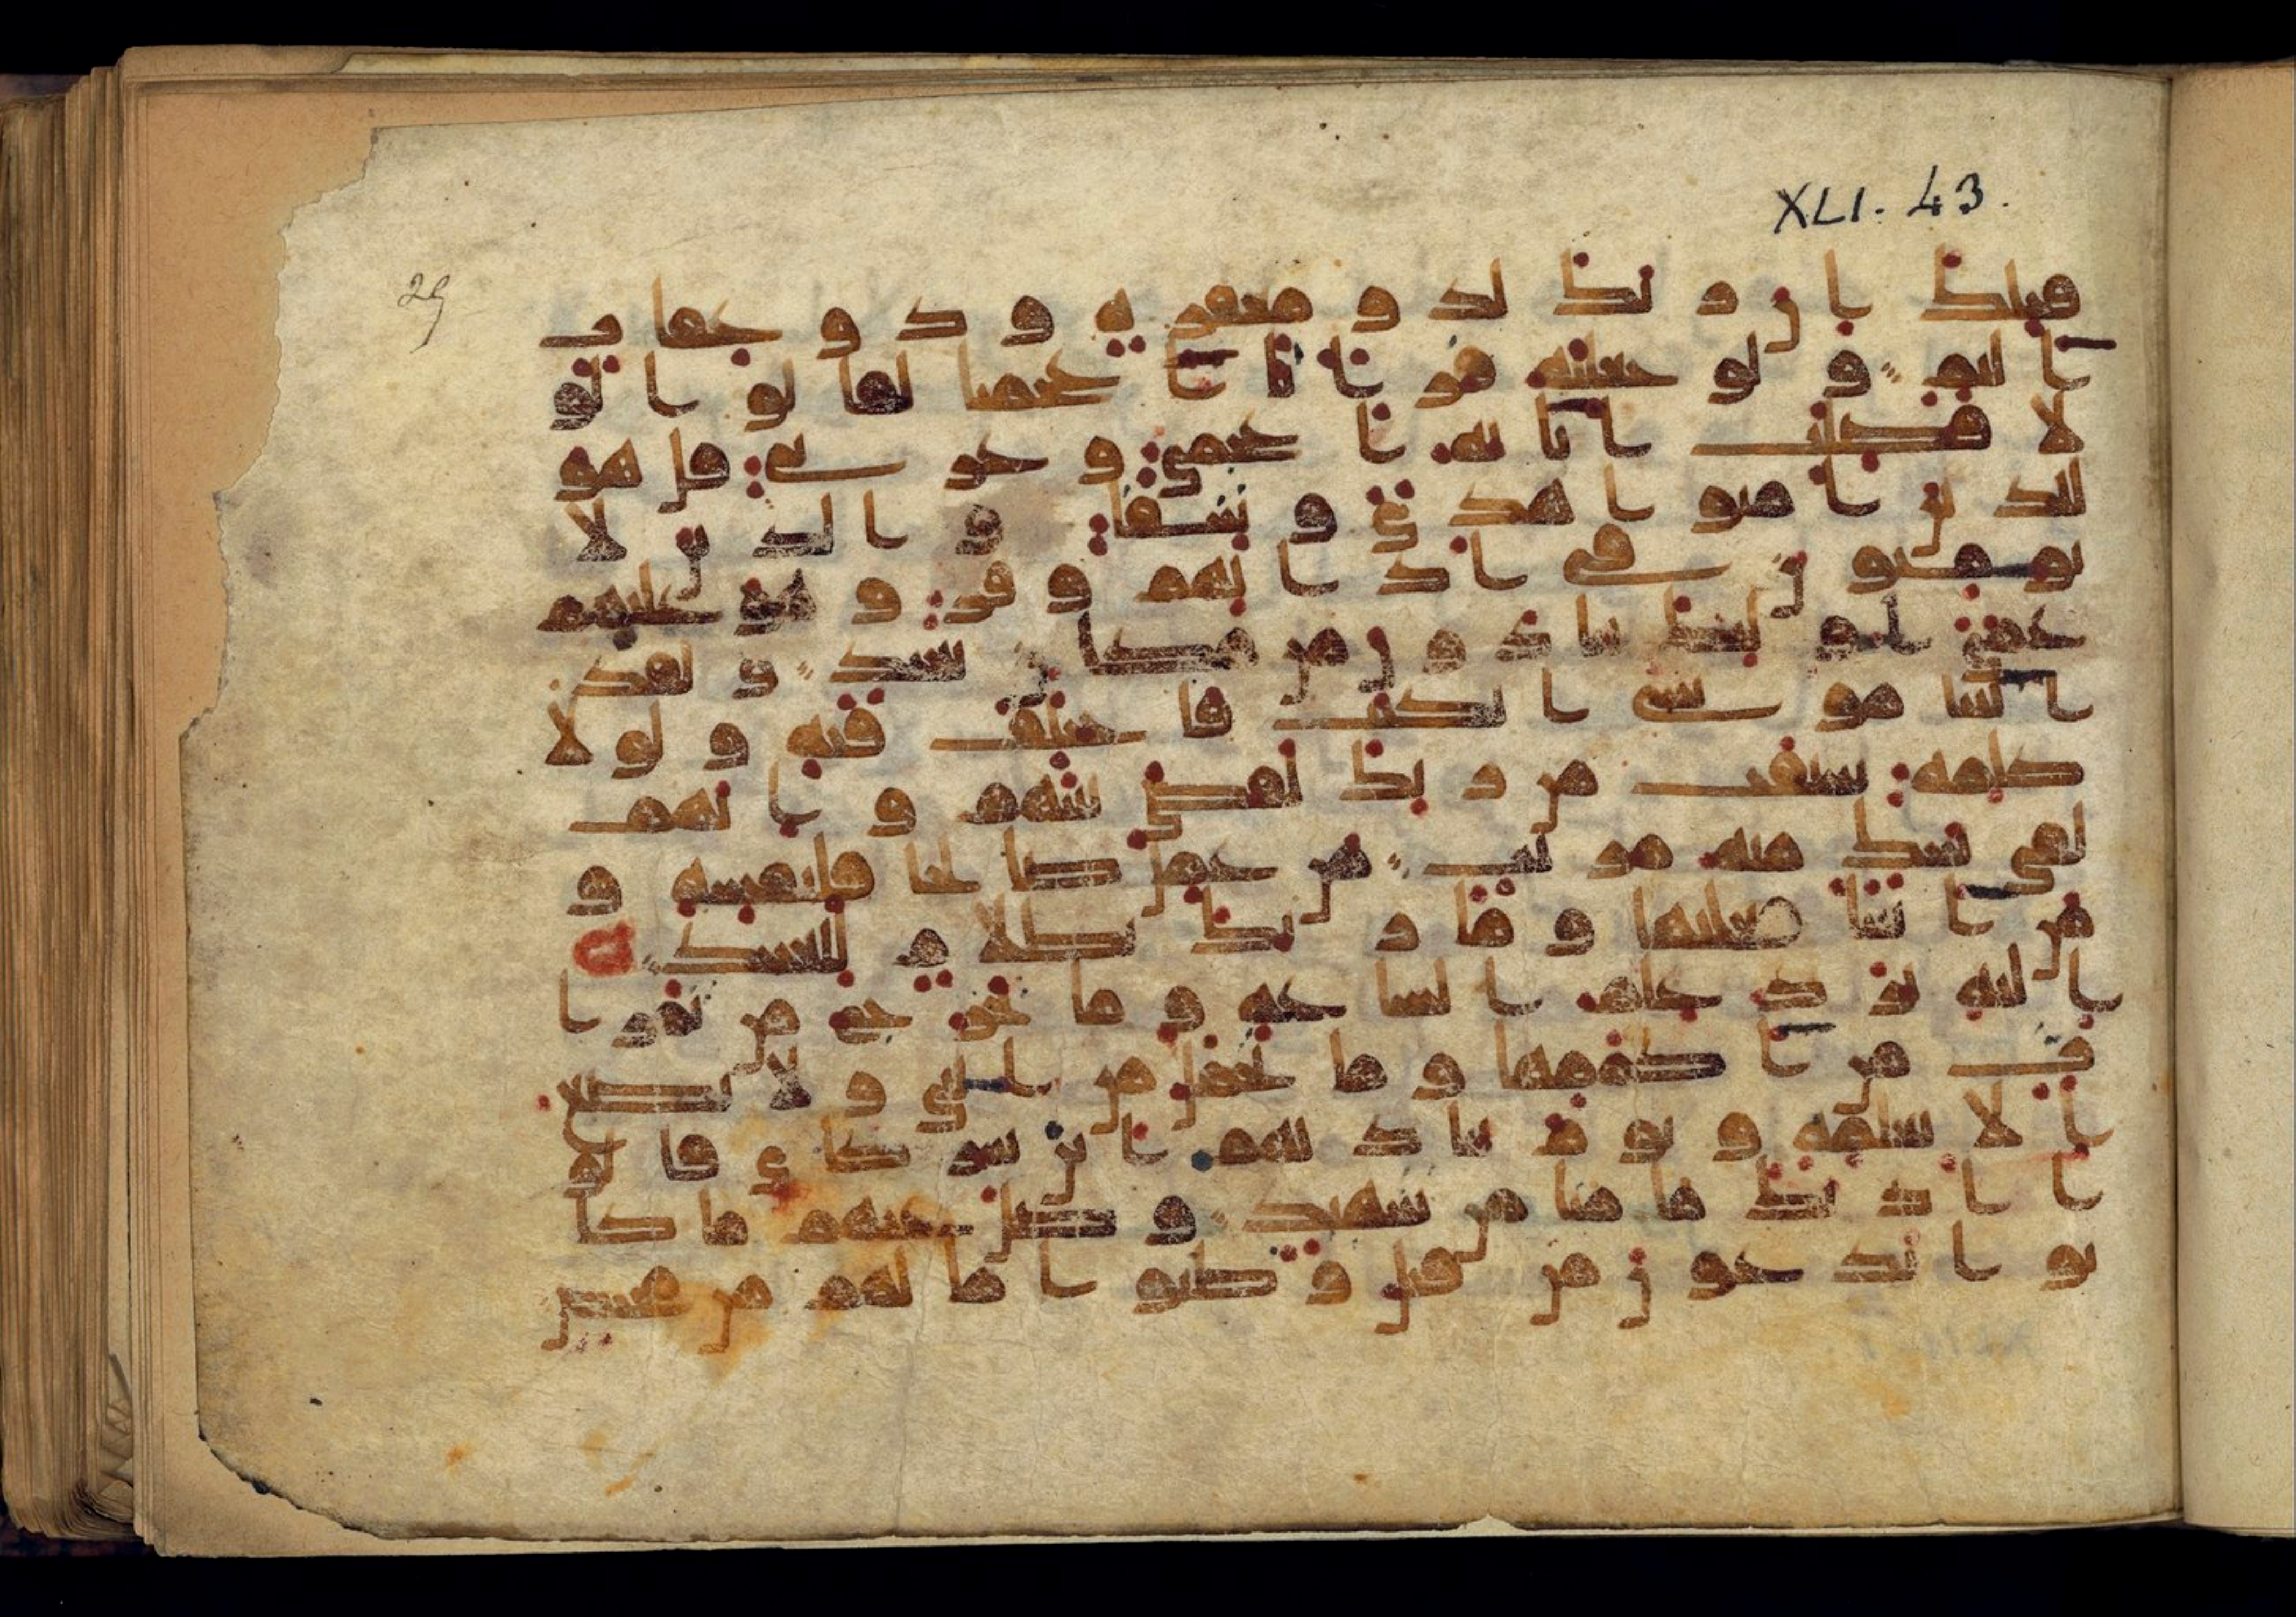 XLI. 43.
29
قبلك ان ربك لذو مغفرة وذو عقاب
اليم ولو جعلنه قرانا اعجميا لقالوا لو
لا فصلت اياته اعجمي وعربي قل هو
للذين امنوا هدى وشفا والذين لا
يومنون في اذانهم وقر وهو عليهم
عمى اولئك ينادون من مكان بعيد ولقد
اتينا موسى الكتب فاختلف فيه ولولا
كلمة سبقت من ربك لقضي بينهم وانهم
لفي شك منه مريب من عمل صالحا فلنفسه و
من اسا فعليها وما ربك بظلام للعبيد
اليه يرد علم الساعة وما تخرج من ثمرا
ت من اكممها وما تحمل من انثى ولا تضع
الا بعلمه ويوم يناديهم اين شركاي قالو
ا اذنك ما منا من شهيد وضل عنهم ما كا
نوا يدعون من قبل وظنوا ما لهم من محيص